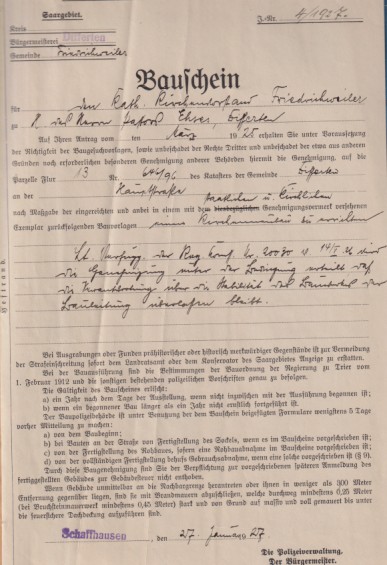 Saargebiet.
J.-Nr. 4/1927.
Kreis
Bürgermeisterei Differten
Gemeinde Friedrichweiler
Bauschein
für den Kath. Kirchenvorstand Friedrichweiler
zu H. des Herrn Pastors Ehses, Differten
Auf Ihren Antrag vom ten März 1925 erhalten Sie unter Voraussetzung
der Richtigkeit der Baugesuchvorlagen, sowie unbeschadet der Rechte Dritter und unbeschadet der etwa aus anderen
Gründen noch erforderlichen besonderen Genehmigung anderer Behörden hiermit die Genehmigung, auf die
Parzelle Flur 13 Nr. 646/96 des Katasters der Gemeinde Differten
an der Hauptstraße staatlichen u. kirchlichen
nach Maßgabe der eingereichten und anbei in einem mit dem diesbezüglichen Genehmigungsvermerk versehenen
Exemplar zurückfolgenden Bauvorlagen einen Kirchenneubau zu errichten
Lt. Verfügg. der Reg. Komf. Nr. 20030 v. 14/I 26 wird
die Genehmigung unter der Bedingung erteilt daß
die Verantwortung über die Stabilität des Bauwerks der
Bauleitung überlassen bleibt.
Heftrand.
Bei Ausgrabungen oder Funden prähistorischer oder historisch merkwürdiger Gegenstände ist zur Vermeidung
der Strafeinschreitung sofort dem Landratsamt oder dem Konservator des Saargebietes Anzeige zu erstatten.
Bei der Bauausführung sind die Bestimmungen der Bauordnung der Regierung zu Trier vom
1. Februar 1912 und die sonstigen bestehenden polizeilichen Vorschriften genau zu befolgen.
Die Gültigkeit des Bauscheins erlischt:
a) ein Jahr nach dem Tage der Ausstellung, wenn nicht inzwischen mit der Ausführung begonnen ist;
b) wenn ein begonnener Bau länger als ein Jahr nicht ernstlich fortgeführt ist.
Der Baupolizeibehörde ist unter Benutzung der dem Bauschein beigefügten Formulare wenigstens 5 Tage
vorher Mitteilung zu machen:
a) von dem Baubeginn;
b) bei Bauten an der Straße von Fertigstellung des Sockels, wenn es im Bauscheine vorgeschrieben ist;
c) von der Fertigstellung des Rohbaues, sofern eine Rohbauabnahme im Bauscheine vorgeschrieben ist;
d) von der vollständigen Fertigstellung behufs Gebrauchsabnahme, wenn eine solche vorgeschrieben ist (§ 9).
Durch diese Baugenehmigung sind Sie der Verpflichtung zur vorgeschriebenen späteren Anmeldung des
fertiggestellten Gebäudes zur Gebäudesteuer nicht enthoben.
Wenn Gebäude unmittelbar an die Nachbargrenze herantreten oder ihnen in weniger als 300 Meter
Entfernung gegenüber liegen, sind sie mit Brandmauern abzuschließen, welche durchweg mindestens 0,25 Meter
(bei Bruchsteinmauerwerk mindestens 0,45 Meter) stark und von Grund auf massiv und voll gemauert bis unter
die feuersichere Dachdeckung auszuführen sind.
Schaffhausen, den 27. Januar 27.
Die Polizeiverwaltung.
Der Bürgermeister.